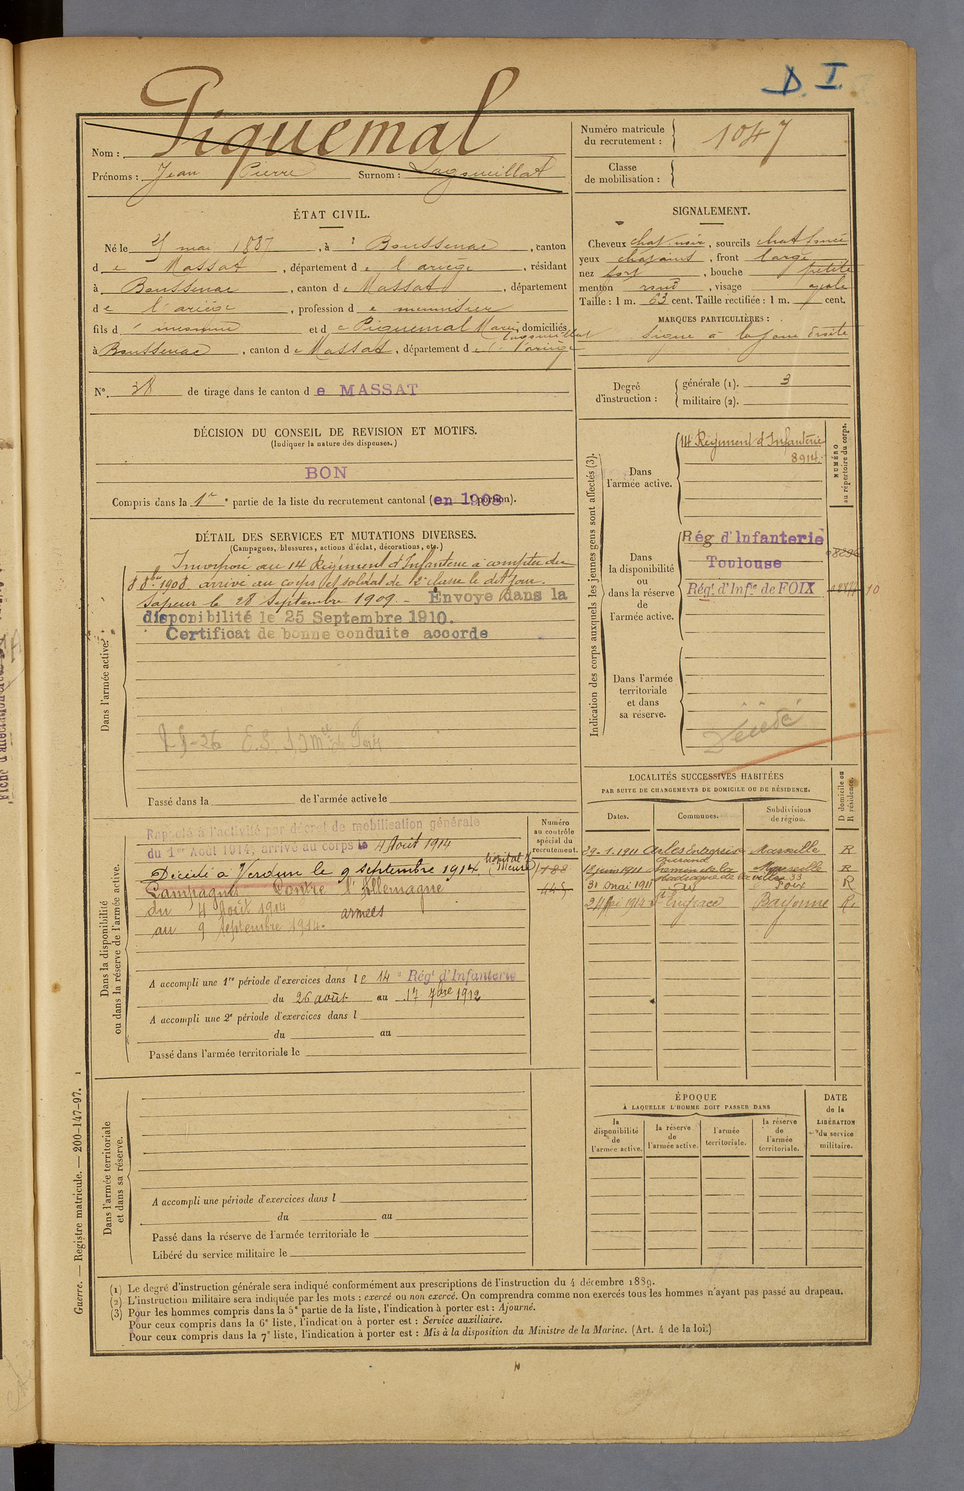 D. I.
Piquemal
Nom :
Prénoms : Jean Pierre Surnom :
Numéro matricule
du recrutement : 1047
Classe
de mobilisation :
ÉTAT CIVIL.
Né le 25 mai 1887, à Boussenac, canton
de Massat, département de l'ariège, résidant
à Boussenac, canton de Massat, département
de l'ariège, profession de meunier
fils d' inconnu et de Piquemal Marie domiciliés
à Boussenac, canton de Massat, département de l'ariège
N° 38 de tirage dans le canton de MASSAT
DÉCISION DU CONSEIL DE REVISION ET MOTIFS.
(Indiquer la nature des dispenses.)
BON
Compris dans la 1re partie de la liste du recrutement cantonal (en 1908).
SIGNALEMENT.
Cheveux chat. noir, sourcils chat foncé
yeux châtains, front large
nez fort, bouche petite
menton rond, visage ovale
Taille : 1 m. 63 cent. Taille rectifiée : 1 m. cent.
MARQUES PARTICULIÈRES :
Signe à la joue droite
Degré
d'instruction :
générale (1). 3
militaire (2).
DÉTAIL DES SERVICES ET MUTATIONS DIVERSES.
(Campagnes, blessures, actions d'éclat, décorations, etc.)
Dans l'armée active.
Incorporé au 14 Régiment d'Infanterie à compter du
8 8bre 1908 arrivé au corps et soldat de 2e classe le dit jour.
Sapeur le 28 Septembre 1909 - Envoyé dans la
disponibilité le 25 Septembre 1910.
Certificat de bonne conduite accordé
Passé dans la de l'armée active le
Indication des corps auxquels les jeunes gens sont affectés (3).
NUMÉRO
au répertoire du corps.
Dans
l'armée active.
14 Régiment d'Infanterie
8914.
Dans
la disponibilité
ou
dans la réserve
de
l'armée active.
Rég d'Infanterie
Toulouse
Rég.t d'Inf.ie de FOIX
Dans l'armée
territoriale
et dans
sa réserve.
Décédé
LOCALITÉS SUCCESSIVES HABITÉES
PAR SUITE DE CHANGEMENTS DE DOMICILE OU DE RÉSIDENCE.
Dates. Communes. Subdivisions
de région. D domicile ou
R résidence.
29.1.1911 Marseille R
31 mai 1911 Foix R
1914 Bayonne R
Dans la disponibilité
ou dans la réserve de l'armée active.
Numéro
au contrôle
spécial du
recrutement.
Rappelé à l'activité par décret de mobilisation générale
du 1er Août 1914, arrivé au corps le 4 Août 1914
Décédé à Verdun le 9 septembre 1914 hôpital (Meuse)
Campagne Contre l'Allemagne
du 4 Août 1914 armées
au 9 Septembre 1914.
A accompli une 1re période d'exercices dans le 14e Rég.t d'Infanterie
du 26 août au 17 7bre 1912
A accompli une 2e période d'exercices dans l
du au
Passé dans l'armée territoriale le
Dans l'armée territoriale
et dans sa réserve.
A accompli une période d'exercices dans l
du au
Passé dans la réserve de l'armée territoriale le
Libéré du service militaire le
ÉPOQUE
À LAQUELLE L'HOMME DOIT PASSER DANS
la
disponibilité
de
l'armée active.
la réserve
de
l'armée active.
l'armée
territoriale.
la réserve
de
l'armée
territoriale.
DATE
de la
LIBÉRATION
du service
militaire.
Guerre. — Registre matricule. — 200-147-97.
(1) Le degré d'instruction générale sera indiqué conformément aux prescriptions de l'instruction du 4 décembre 1889.
(2) L'instruction militaire sera indiquée par les mots : exercé ou non exercé. On comprendra comme non exercés tous les hommes n'ayant pas passé au drapeau.
(3) Pour les hommes compris dans la 5e partie de la liste, l'indication à porter est : Ajourné.
Pour ceux compris dans la 6e liste, l'indication à porter est : Service auxiliaire.
Pour ceux compris dans la 7e liste, l'indication à porter est : Mis à la disposition du Ministre de la Marine. (Art. 4 de la loi.)